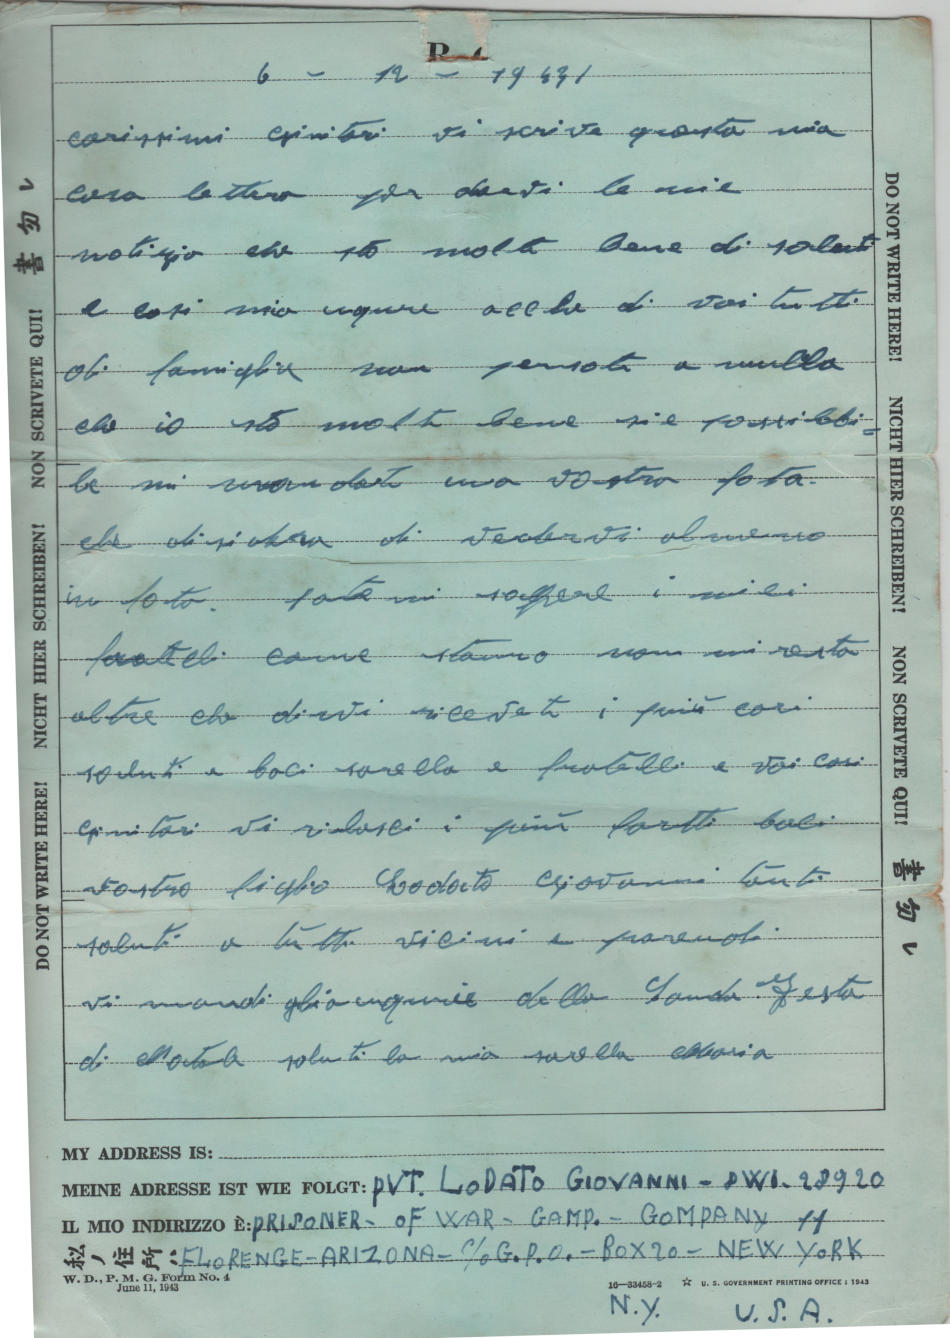 6 - 12 - 1943/
carissimi ginitori vi scrivo questa mia
cara lettera per darvi le mie
notizia che stò molto bene di saluti
e cosi mia ugure acche di voi tutti
di famiglia non pensate a nulla
che io stò molto bene si e possibbi=
le mi mandati una vostra foto.
che disidera di vedervi almeno
in foto. fate mi sappere i miei
fratelli come stanno non mi resta
altre che dirvi riceveti i piú cari
saluti e baci sarella e fratelli e voi cari
ginitori vi rilasci i piú fortti baci
vostro figlio Lodato Giovanni tanti
saluti a tutti vicini e parendi
vi mandi gliaugurie della Sanda Festa
di Natale saluti la mia sarella Maria
DO NOT WRITE HERE! NICHT HIER SCHREIBEN! NON SCRIVETE QUI! 書勿レ
DO NOT WRITE HERE! NICHT HIER SCHREIBEN! NON SCRIVETE QUI! 書勿レ
MY ADDRESS IS:
MEINE ADRESSE IST WIE FOLGT: PVT. LODATO GIOVANNI - PWI. 28920
IL MIO INDIRIZZO È: PRISONER - OF WAR - GAMP. - GOMPANY 11
私ノ住所ハ FLORENGE - ARIZONA - C/o G.P.O. - BOX 20 - NEW YORK
W. D., P. M. G. Form No. 4
June 11, 1943
16—33458-2 ☆ U. S. GOVERNMENT PRINTING OFFICE : 1943
N.Y. U.S.A.